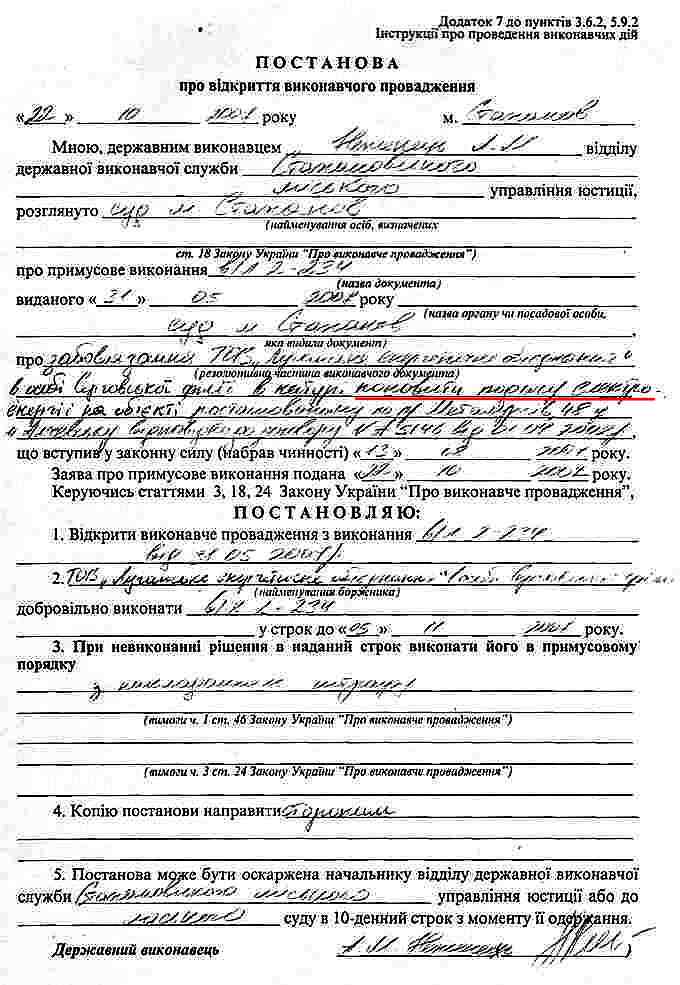 Додаток 7 до пунктів 3.6.2, 5.9.2
Інструкції про проведення виконавчих дій
ПОСТАНОВА
про відкриття виконавчого провадження
«22» 10 року м. Стаханов
Мною, державним виконавцем А.М відділу
державної виконавчої служби Стахановського
міського управління юстиції,
розглянуто суд м Стаханов
(найменування осіб, визначених
ст. 18 Закону України "Про виконавче провадження")
про примусове виконання в/л 2-234
(назва документа)
виданого «31» 05 року
(назва органу чи посадової особи,
суд м Стаханов ,
яка видала документ)
про ТОВ "Луганське енергетичне об'єднання"
(резолютивна частина виконавчого документа)
в особі філії поновити подачу електро-
енергії на об'єкті по 48 у
м договору від
що вступив у законну силу (набрав чинності) «13» року.
Заява про примусове виконання подана «22» 10 року.
Керуючись статтями 3, 18, 24 Закону України “Про виконавче провадження”,
ПОСТАНОВЛЯЮ:
1. Відкрити виконавче провадження з виконання в/л 2-234
від 31 05
2. ТОВ "Луганське енергетичне об'єднання" в особі
(найменування боржника)
добровільно виконати в/л 2-234
у строк до «05» 11 року.
3. При невиконанні рішення в наданий строк виконати його в примусовому
порядку
з штрафу
(вимоги ч. 1 ст. 46 Закону України "Про виконавче провадження")
(вимоги ч. 3 ст. 24 Закону України "Про виконавче провадження")
4. Копію постанови направити сторонам
5. Постанова може бути оскаржена начальнику відділу державної виконавчої
служби Стахановського міського управління юстиції або до
суду в 10-денний строк з моменту її одержання.
Державний виконавець А.М. )